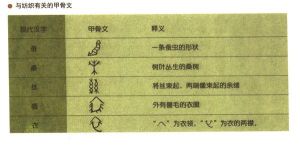 与纺织有关的甲骨文
现代汉字 甲骨文 释义
一条蚕虫的形状
桑 树叶丛生的桑树
丝 将丝束起，两端像束起的余绪
外有兽毛的衣服
衣 为衣领，为衣的两襟。